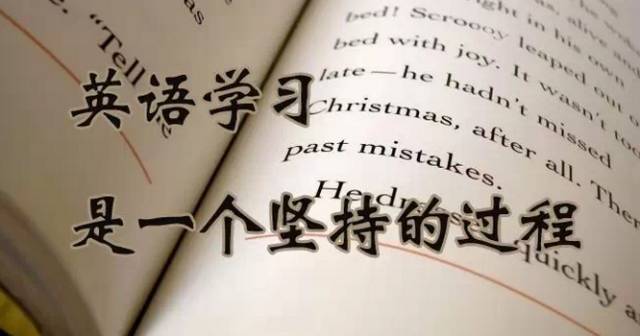 “Tell
in his own
bed! leaped out
bed with joy. It wasn't too
late—he hadn't missed
Christmas, after all.
past mistakes.
He quickly
英语学习
是一个坚持的过程